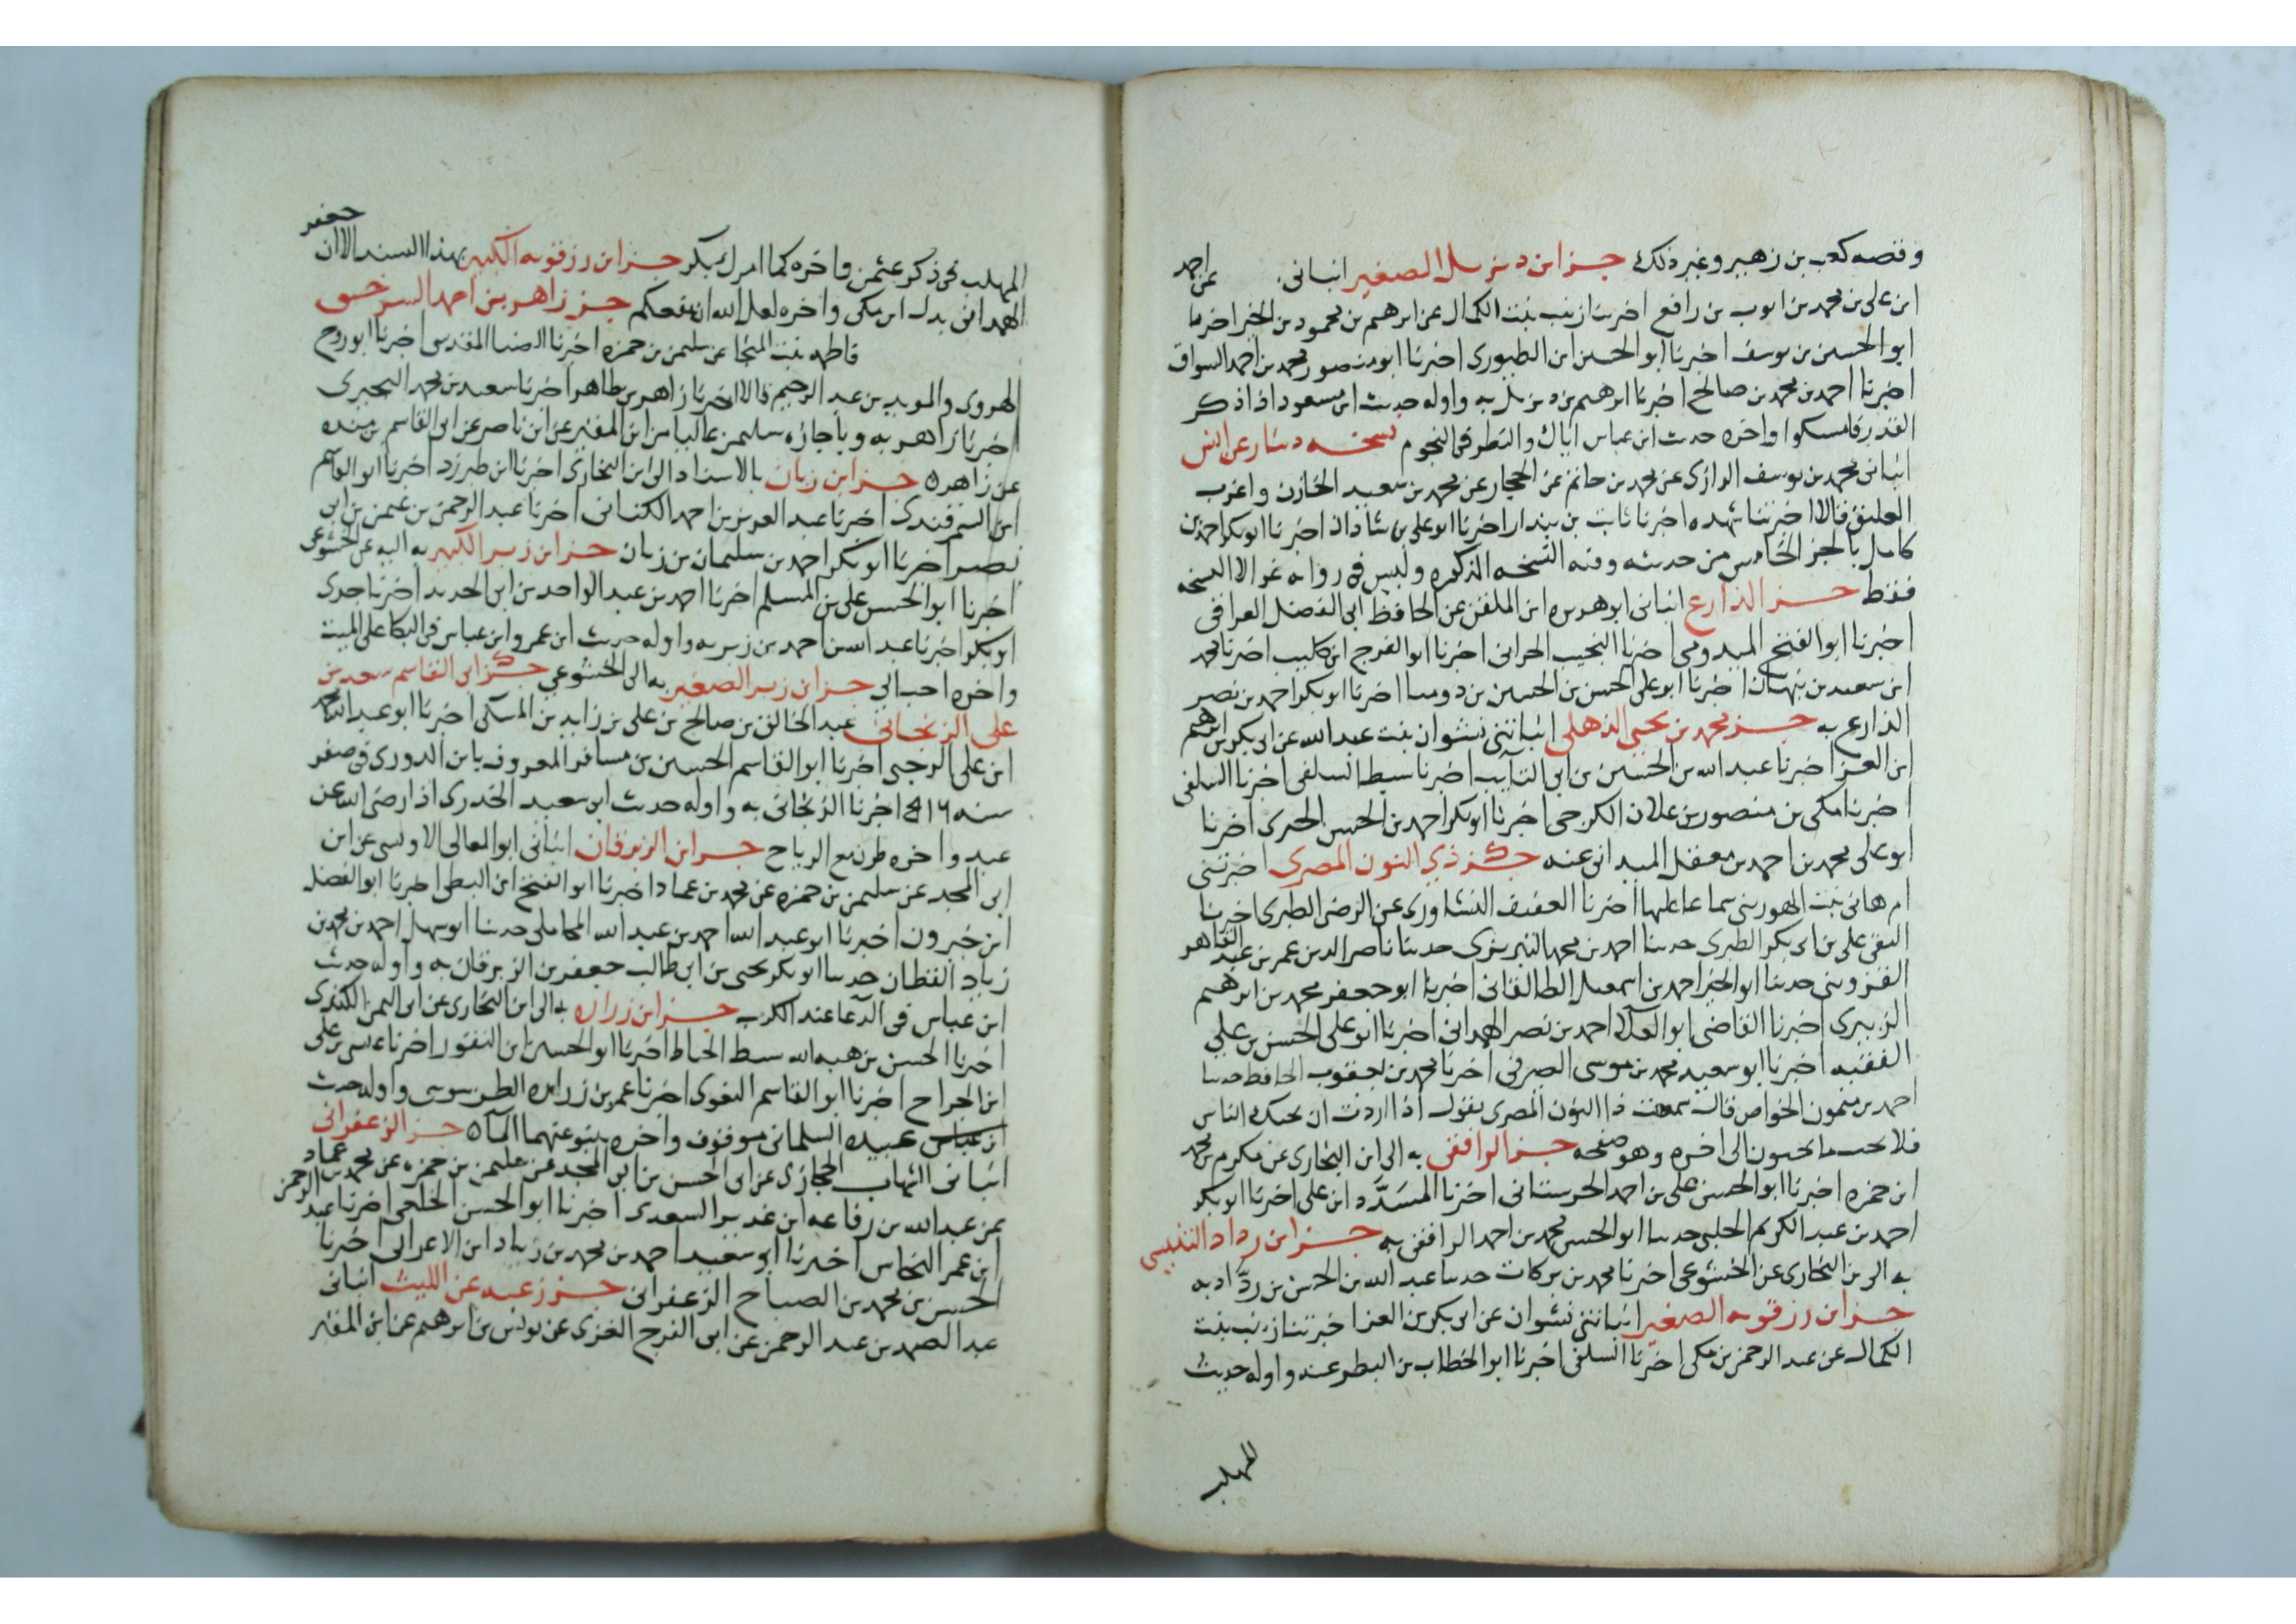 وقصه كعب بن زهير وغير ذلك جزابن ديزيل الصغير انباني عن احمد
ابن علي بن محمد بن ايوب بن رافع اخبرتنا زينب بنت الكمال عن ابرهيم بن محمود بن الخير اخبرنا
ابو الحسين بن يوسف اخبرنا ابو الحسين ابن الطيوري اخبرنا ابو منصور محمد بن احمد السواق
اخبرنا احمد بن محمد بن صالح اخبرنا ابرهيم بن ديزيل به واوله حديث ابن مسعود اذا ذكر
القدر فامسكوا واخره حديث ابن عباس اياك والنظر في النجوم نسخه دينار عن انس
انباني محمد بن يوسف الرازي عن محمد بن حاتم عن الحجار عن محمد بن سعيد الخازن واعزب
العليق قالا اخبرتنا شهده اخبرنا ثابت بن بندار اخبرنا ابو علي بن شاذان اخبرنا ابو بكر احمد بن
كامل بالجز الخامس من حديثه وفيه النسخه المذكوره وليس في روايه غير الا النسخه
فقط جز الذارع انباني ابو هريره ابن الملقن عن الحافظ ابي الفضل العراقي
اخبرنا ابو الفتح الميدومي اخبرنا النجيب الحراني اخبرنا ابو الفرج ابن كليب اخبرنا محمد
ابن سعيد بن نبهان اخبرنا ابو علي الحسن بن الحسين بن دوما اخبرنا ابو بكر احمد بن نصر
الذارع به جز محمد بن يحيى الذهلي انباتني نشوان بنت عبد الله عن ابي بكر بن ابرهيم
ابن العز اخبرنا عبد الله بن الحسين بن ابي التايب اخبرنا سبط السلفي اخبرنا السلفي
اخبرنا مكي بن منصور بن علان الكرجي اخبرنا ابو بكر احمد بن الحسن الحيري اخبرنا
ابو علي محمد بن احمد بن معقل الميداني عنه جز ذي النون المصري اخبرتني
ام هاني بنت الهوريني سماعا عليها اخبرنا العفيف النشاوري عن الرضي الطبري اخبرنا
التقي علي بن ابي بكر الطبري حدثنا احمد بن محمد التبريزي حدثنا ناصر الدين عمر بن عبد القاهر
القزويني حدثنا ابو الخير احمد بن اسمعيل الطالقاني اخبرنا ابو جعفر محمد بن ابرهيم
الزبيري اخبرنا القاضي ابو العلا احمد بن نصر الهمداني اخبرنا ابو علي الحسن بن علي
الفقيه اخبرنا ابو سعيد محمد بن موسى الصيرفي اخبرنا محمد بن يعقوب الحافظ حدثنا
احمد بن ميمون الخواص قال سمعت ذا النون المصري يقول اذا اردت ان يحبك الناس
فلا تحب ما يحبون الى اخره وهو صفحه جز الرافقي به الى ابن البخاري عن مكرم بن محمد
ابن حمزه اخبرنا ابو الحسن علي بن احمد الحرستاني اخبرنا المسدد ابن علي اخبرنا ابو بكر
احمد بن عبد الكريم الحلبي حدثنا ابو الحسن محمد بن احمد الرافقي به جزابن رداد التنيسي
به الى بن البخاري عن الخشوعي اخبرنا محمد بن بركات حدثنا عبد الله بن الحسن بن رداد به
جزابن رزقويه الصغير انباتني نشوان عن ابي بكر بن العز اخبرتنا زينب بنت
الكمال عن عبد الرحمن بن مكي اخبرنا السلفي اخبرنا ابو الخطاب بن البطر عنه واوله حديث
المهلب
جعفر
المهلب نحن ذكر عثمن واخره كما امرك بكر جزابن رزقويه الكبير بهذا السند الا ان
الهمداني بدل ابن مكي واخره لعل الله ان ينفعكم جز زاهر بن احمد السرخسي
فاطمه بنت المنجا عن سليمن بن حمزه اخبرنا الضيا المقدسي اخبرنا ابو روح
الهروي والمويد بن عبد الرحيم قالا اخبرنا زاهر بن طاهر اخبرنا سعيد بن محمد البحيري
اخبرنا زاهر به وباجازه سليمن عاليا من ابن المقير عن ابن ناصر عن ابي القاسم بن منده
عن زاهر ه جزابن زبان بالاسناد الى ابن البخاري اخبرنا ابن طبرزد اخبرنا ابو القاسم
ابن السمرقندي اخبرنا عبد العزيز بن احمد الكتاني اخبرنا عبد الرحمن بن عثمن بن ابي
نصر اخبرنا ابو بكر احمد بن سليمان بن زبان جزابن زبر الكبير به اليه عن الخشوعي
اخبرنا ابو الحسن علي بن المسلم اخبرنا احمد بن عبد الواحد بن ابي الحديد اخبرنا جدي
ابو بكر اخبرنا عبد الله بن احمد بن زبر به واوله حديث ابن عمر وابن عباس في البكا على الميت
واخره احب الي جزابن زبر الصغير به الى الخشوعي جز ابي القاسم سعد بن
علي الزنجاني عبد الخالق بن صالح بن علي بن زايد بن المسكي اخبرنا ابو عبد الله محمد
ابن علي الرحبي اخبرنا ابو القاسم الحسين بن مسافر المعروف بابن الدوري في صفر
سنه ٤١٦ اخبرنا الزنجاني به واوله حديث ابي سعيد الخدري اذا رضي الله عن
عبد واخره طرن مع الرياح جزابن الزبرقان انباني ابو المعالي الاوسي عن ابن
ابي المجد عن سليمن بن حمزه عن محمد بن عماد اخبرنا ابو الفتح ابن البطي اخبرنا ابو الفضل
ابن خيرون اخبرنا ابو عبد الله احمد بن عبد الله المحاملي حدثنا ابو سهل احمد بن محمد بن
زياد القطان حدثنا ابو بكر يحيى بن ابي طالب جعفر بن الزبرقان به واوله حديث
ابن عباس في الدعا عند الكرب جزابن زراره به الى ابن البخاري عن ابي اليمن الكندي
اخبرنا الحسن بن هبه الله سبط الخياط اخبرنا ابو الحسين ابن النقور اخبرنا عيسى بن علي
ابن الجراح اخبرنا ابو القاسم البغوي اخبرنا عمر بن زراره الطرسوسي واوله حديث
ابن عباس عبيده السلماني موقوف واخره ينبو عنهما الما ه جز الزعفراني
انباني الشهاب الحجازي عن ابي الحسن بن ابي المجد عن سليمن بن حمزه عن محمد بن عماد
عن عبد الله بن رفاعه ابن غدير السعدي اخبرنا ابو الحسن الخلعي اخبرنا عبد الرحمن
ابن عمر النحاس اخبرنا ابو سعيد احمد بن محمد بن زياد ابن الاعرابي اخبرنا
الحسن بن محمد بن الصباح الزعفراني جز زغبه عن الليث انباني
عبد الصمد بن عبد الرحمن عن ابي الفرج الغزي عن يونس بن ابرهيم عن ابن المقير